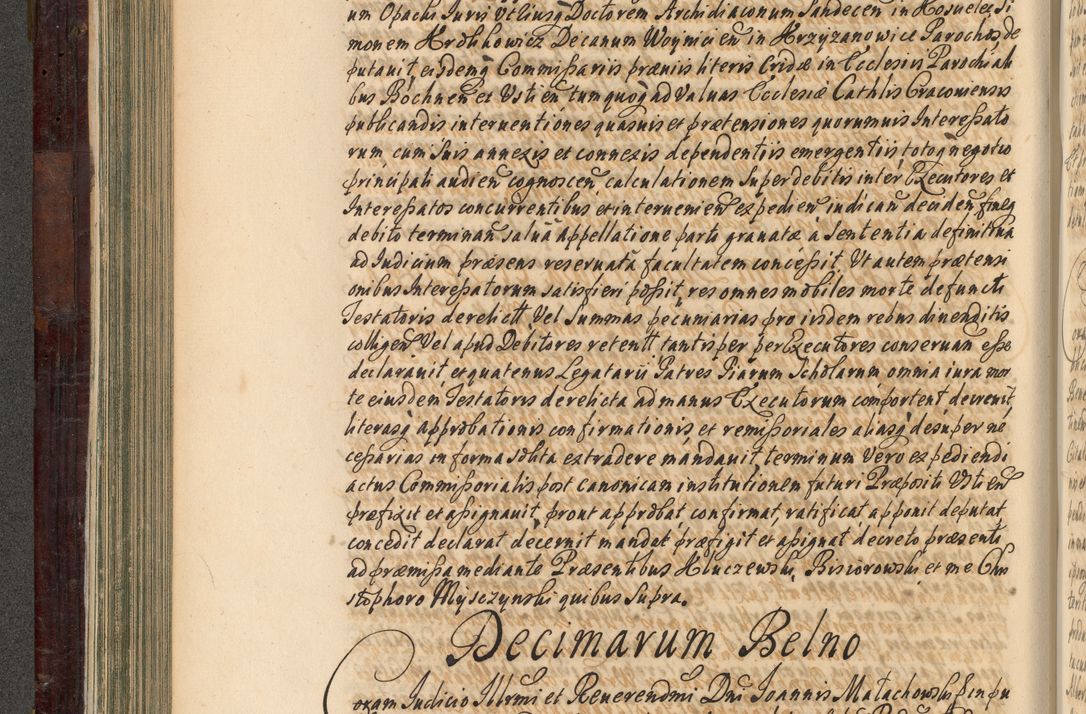 um Opachi Juris Utriusq Doctorem Archidiaconum Sandecen in Hosuelec Si
monem Hrolikowicz Decanum Woynicien in Hrzyzanowice Parochos de
putavit, eisdemq Commissariis prævis literis Cridæ in Ecclesiis Parochiali
bus Bochnen et Ustien tum quoq ad Valvas Ecclesiæ Cathlis Cracoviensis
publicandis interventiones quasvis et prætensiones quorumvis Interessato
rum cum suis annexis et connexis dependentiis emergentiis totoq negotio
principali audien cognoscen, calculationem super debitis inter Executores et
Interessatos concurrentibus et intervenien expedien iudican deciden fineq
debito terminan salva Appellatione parti gravatæ à Sententia definitiva
ad Iudicium præsens reservata facultatem concessit. Ut autem prætensi
onibus Interessatorum satisfieri possit, res omnes mobiles morte defuncti
Testatoris derelict, Vel summas pecuniarias pro iisdem rebus divenditis
colligen Vel apud Debitores retent tantisper per Executores conservan esse
declaravit et quatenus Legatarii Patres Piarum Scholarum omnia iura mor
te eiusdem Testatoris derelicta ad manus Executorum comportent decrevit
literasq approbationis confirmationis, et remissoriales aliasq desuper ne
cessarias in forma solita extradere mandavit, terminum Vero expediendi
actus Commissorialis post canonicam institutionem futuri Præpositi Ustien
præfixit et assignavit, prout approbat confirmat, ratificat apponit deputat
concedit declarat decernit mandat præfigit et assignat decreto præsenti
ad præmissa mediante Præsentibus Kluczewski, Biscorowski et me Chri
stophoro Mysczynski quibus supra.
Decimarum Belno
Coram Iudicio Illrmi et Reverendmi Dni Joannis Małachowski Epi